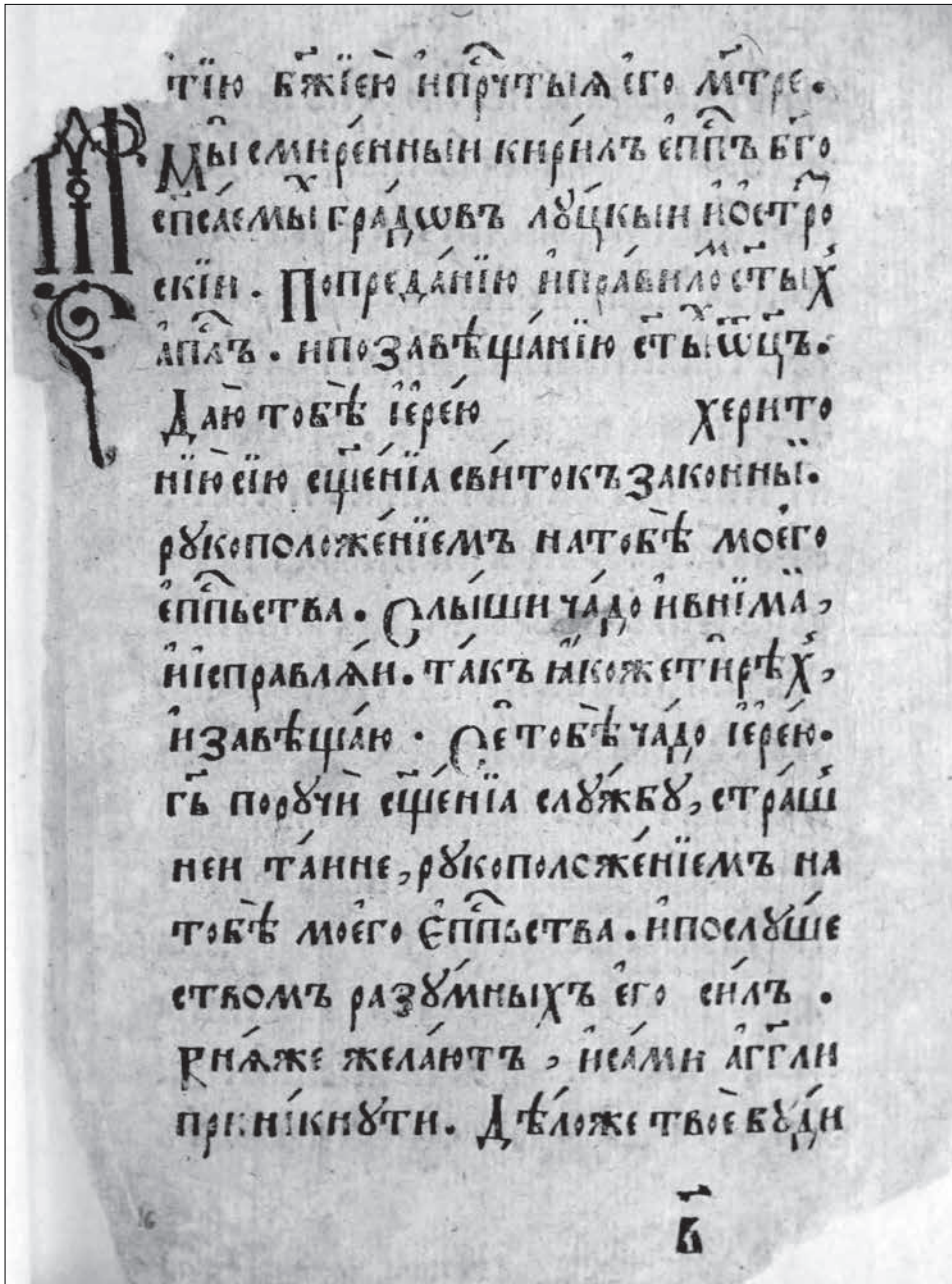 тїю бж҃їею̀ и҆прч҃тыꙗ є҆го мт҃ре.
Мы смире́нныи кири́лъ єпⷭ҇пъ бг҃о
сп҃са́емыⷯ гра́дѡвъ лꙋ́цкыи и҆ѻстроⷤ
скїи. Попреда́нїю и҆пра́вилоⷨ ст҃ыхъ
а҆пⷭ҇лъ. ипозавѣща́нїю ст҃ыⷯ ѿц҃ъ.
Даю̀ тобѣ̀ і҆єре́ю херито
нїю̀ сїю сщ҃е́нїа сви́токъ законныⷤ.
рꙋкоположе́нїемъ натобѣ̀ моего̀
єпⷭ҇пьства. Слы́ши ча́до и҆внїма̀,
и҆исправлѧ́и. та́къ ꙗ҆коже ти̑ рѣ́хъ,
и҆завѣща́ю. Се̑ тобѣ̀ ча́до і҆єре́ю.
гь҃ порꙋчѝ сщ҃е́нїа слꙋ́жбꙋ, стра́ш
неи та́ине, рꙋкоположе́нїемъ на
тобѣ̀ моего̀ Єпⷭ҇пьства. и҆послꙋ́ше
ством разꙋ́мныхъ є҆го си́лъ.
Внѧ́же жела́ютъ, и҆са́ми а҆гг҃ли
прини́кнꙋти. Дѣ́ложе твоѐ бꙋ́ди
в҃
16